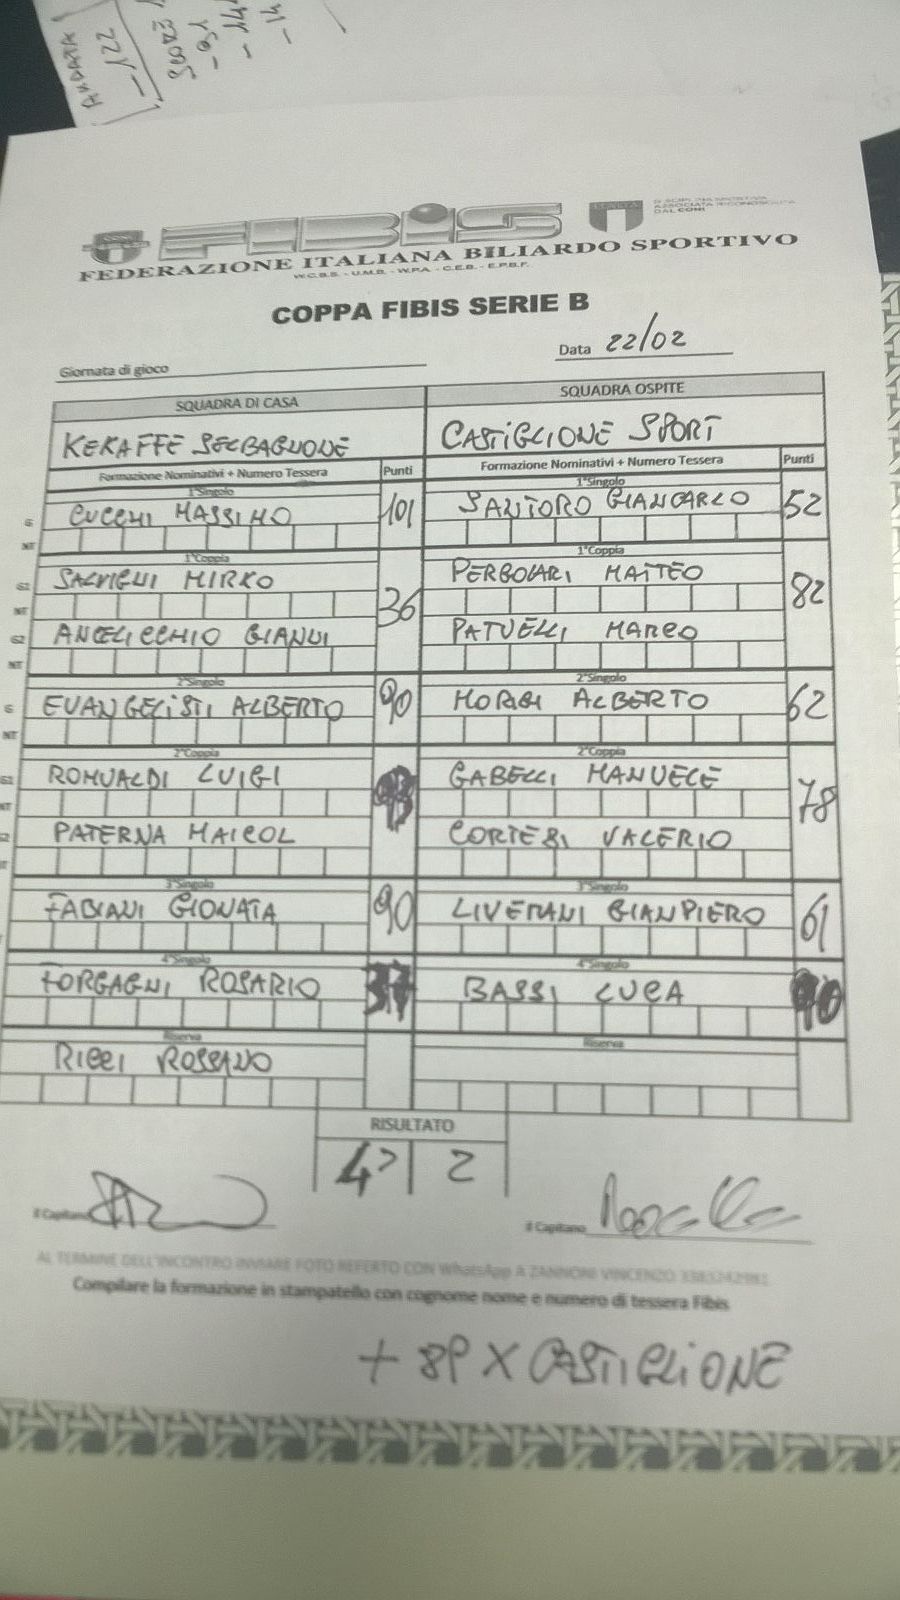 ANDATA
221
FIBiS
FEDERAZIONE ITALIANA BILIARDO SPORTIVO
W.C.B.S. - U.M.B. - W.P.A. - C.E.B. - E.P.B.F.
COPPA FIBIS SERIE B
Giornata di gioco
Data 22/02
SQUADRA DI CASA SQUADRA OSPITE
KEKAFFE SELBAGNONE CASTIGLIONE SPORT
Formazione Nominativi + Numero Tessera Punti Formazione Nominativi + Numero Tessera Punti
1°Singolo 1°Singolo
G CUCCHI MASSIMO 101 SANTORO GIANCARLO 52
NT
1°Coppia 1°Coppia
G1 SALVIGNI MIRKO 36 PERGOLARI MATTEO 82
NT
G2 ANGELICCHIO GIANNI PATUELLI MARCO
NT
2°Singolo 2°Singolo
G EVANGELISTI ALBERTO 90 ALBERTO 62
NT
2°Coppia 2°Coppia
G1 ROMUALDI LUIGI GABELLI MANUELE 78
NT
G2 PATERNA MAICOL CORTESI VALERIO
NT
3°Singolo 3°Singolo
FABIANI GIONATA 90 LIVERANI GIANPIERO 61
4°Singolo 4°Singolo
FORGAGNI ROSARIO 37 BASSI LUCA
Riserva Riserva
RICCI ROSSANO
RISULTATO
4 2
Il Capitano Il Capitano
AL TERMINE DELL'INCONTRO INVIARE FOTO REFERTO CON WhatsApp A ZANNONI VINCENZO
Compilare la formazione in stampatello con cognome nome e numero di tessera Fibis
+ 8P X CASTIGLIONE